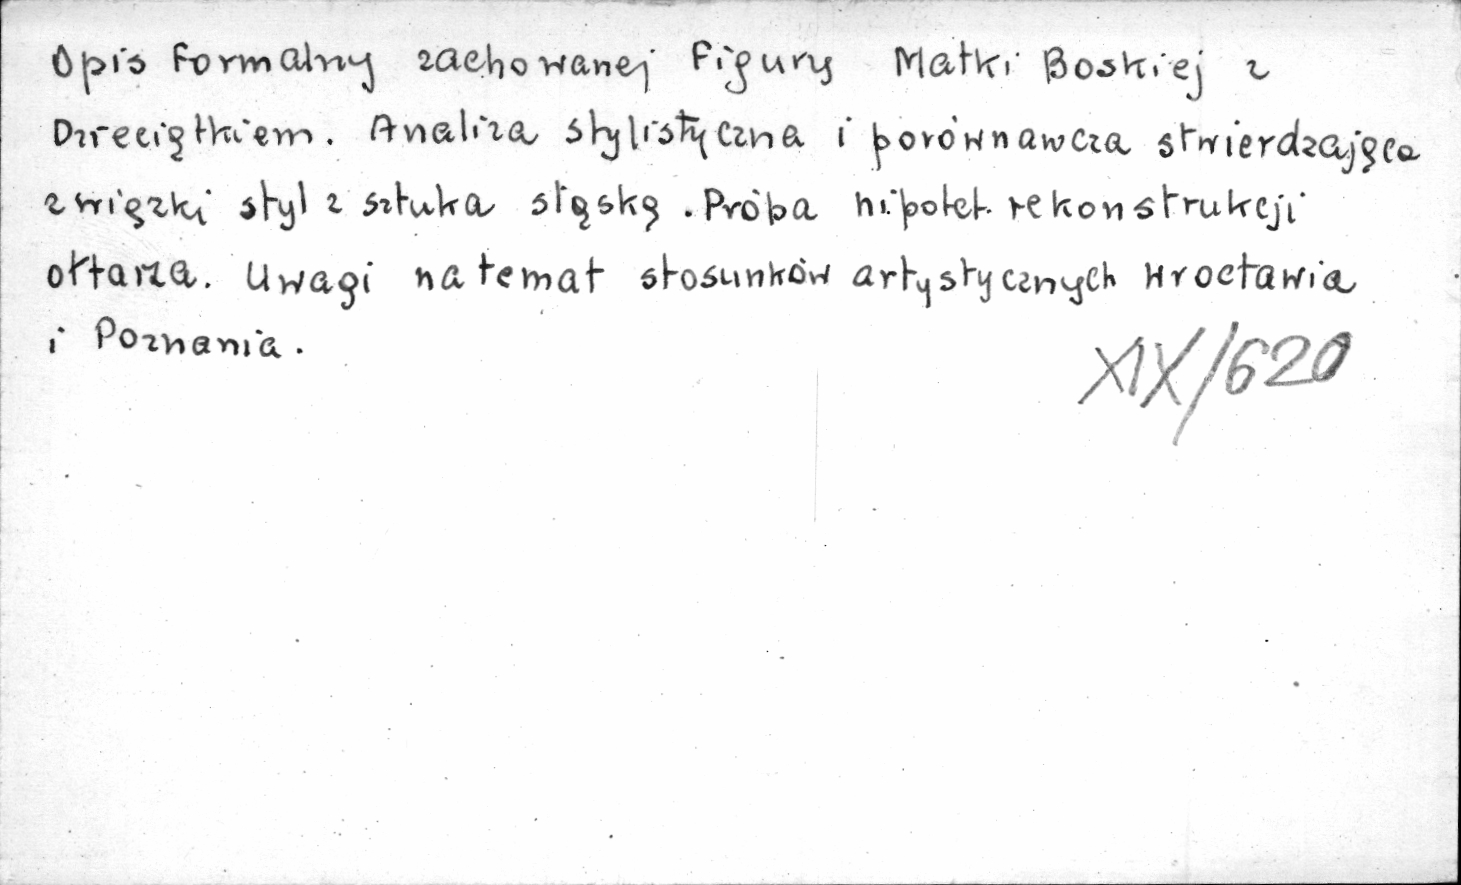 Opis formalny zachowanej figury Matki Boskiej z
Dzieciątkiem. Analiza stylistyczna i porównawcza stwierdzająca
związki styl z sztuka śląską. Próba hipotet. rekonstrukcji
ołtarza. Uwagi na temat stosunków artystycznych Wrocławia
i Poznania.
XIX/620